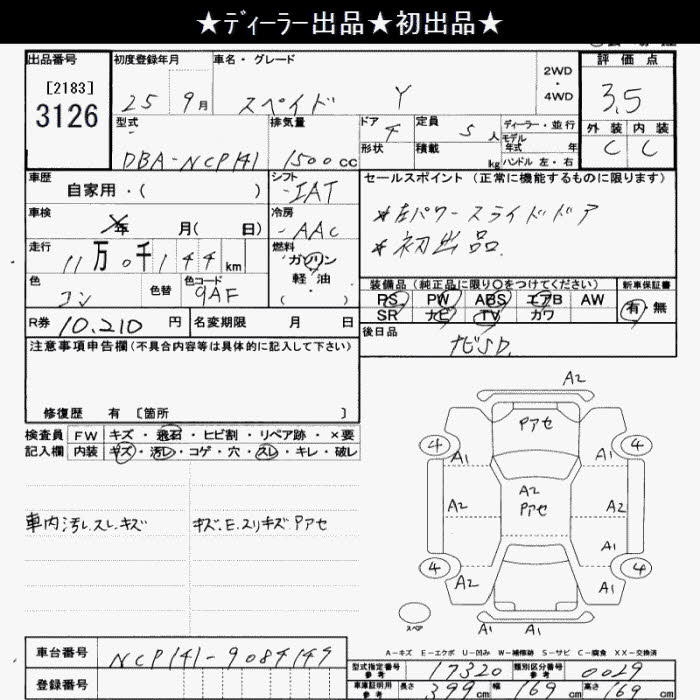 ★ディーラー出品★初出品★
出品番号 初度登録年月 車名・グレード 評価点
[2183] 3126 25 9月 スペイド Y 2WD・4WD 3.5
型式 排気量 ドア 4 定員 5人 ディーラー・並行 外装 内装
DBA-NCP141 1500cc 形状 積載 kg モデル年式 年 C C
ハンドル 左・右
車歴 シフト セールスポイント(正常に機能するものに限ります)
自家用・( ) IAT
車検 年 月( 日) 冷房 AAC *左パワースライドドア
走行 11万0千144km 燃料 ガソリン *初出品
軽油・( )
色 コン 色替 色コード 9AF 装備品(純正品に限り○をつけてください) 新車保証書
PS PW ABS エアB AW 有・無
R券 10,210円 名変期限 月 日 SR ナビ TV カワ
後日品 ナビSD.
注意事項申告欄(不具合内容等は具体的に記入して下さい)
修復歴 有 [箇所 ]
検査員 FW キズ・飛石・ヒビ割・リペア跡・×要
記入欄 内装 キズ・汚レ・コゲ・穴・スレ・キレ・破レ
車内汚レ.スレ.キズ キズ.E.スリキズ Pアセ
A2
Pアセ
4 A1 A1 4
A2 A2 Pアセ A2
A1
4 A2 A1 4
スペア
A-キズ E-エクボ U-凹み W-補修跡 S-サビ C-腐食 XX-交換済
車台番号 NCP141-9084149
型式指定番号 参考 17320 類別区分番号 参考 0029
登録番号
車庫証明用 参考 長さ 399cm 幅 169cm 高さ 169cm